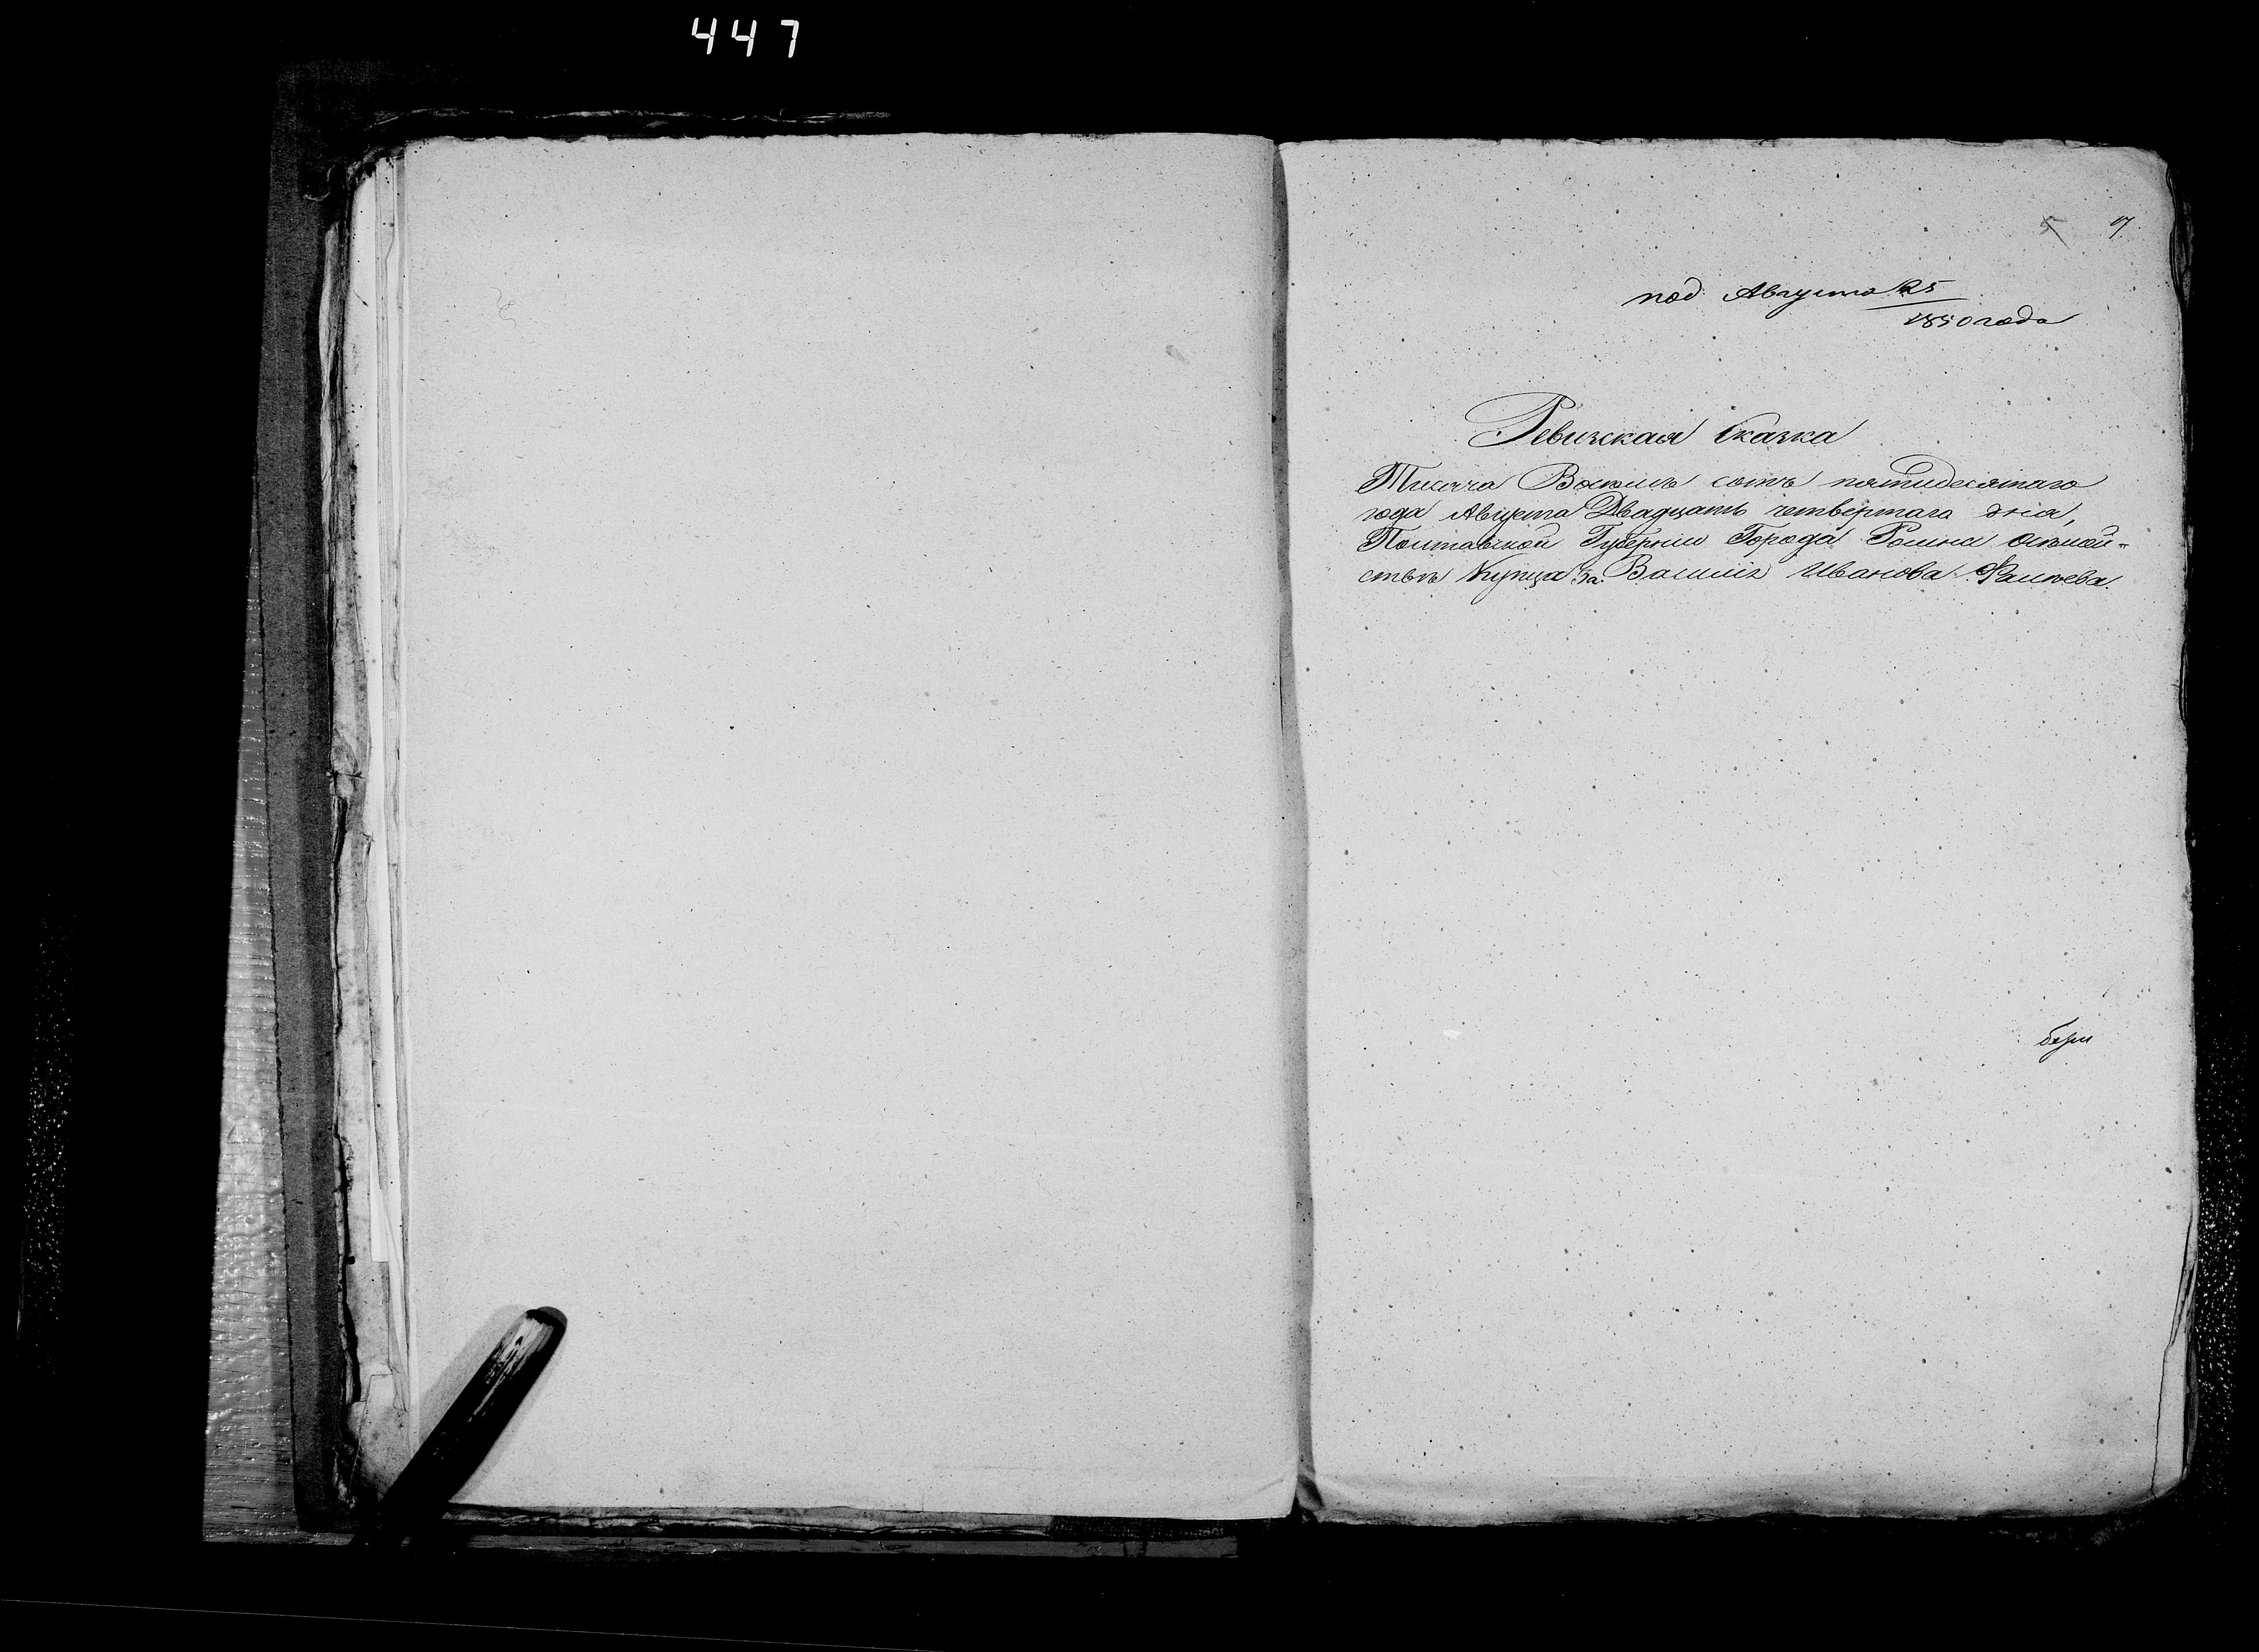 447
5 17
под. Августа 25
1850 года
Ревизская Сказка
Тысяча Восемь сотъ пятидесятаго
года Августа Двадцать четвертаго дня,
Полтавской Губерніи Города Ромна о семей-
ствѣ Купца Василія Иванова